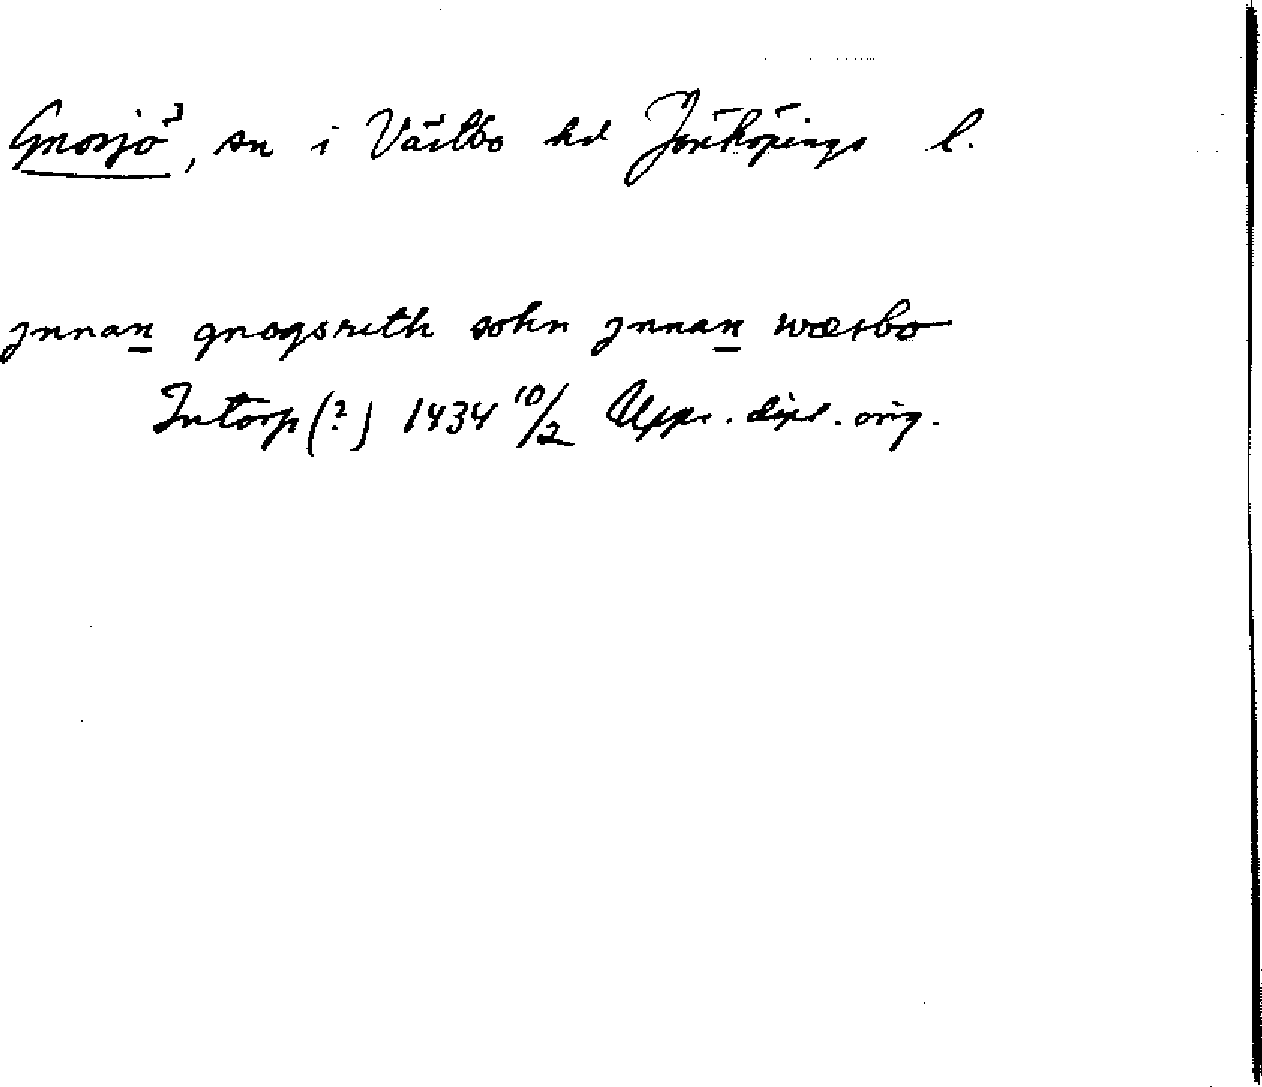 Gnosjö, sn i Västbo hd Jönköpings l.
jnnan gnogsrith sokn jnnan wæsbo
Intorp (?) 1434 10/2 Upps. dipl. orig.